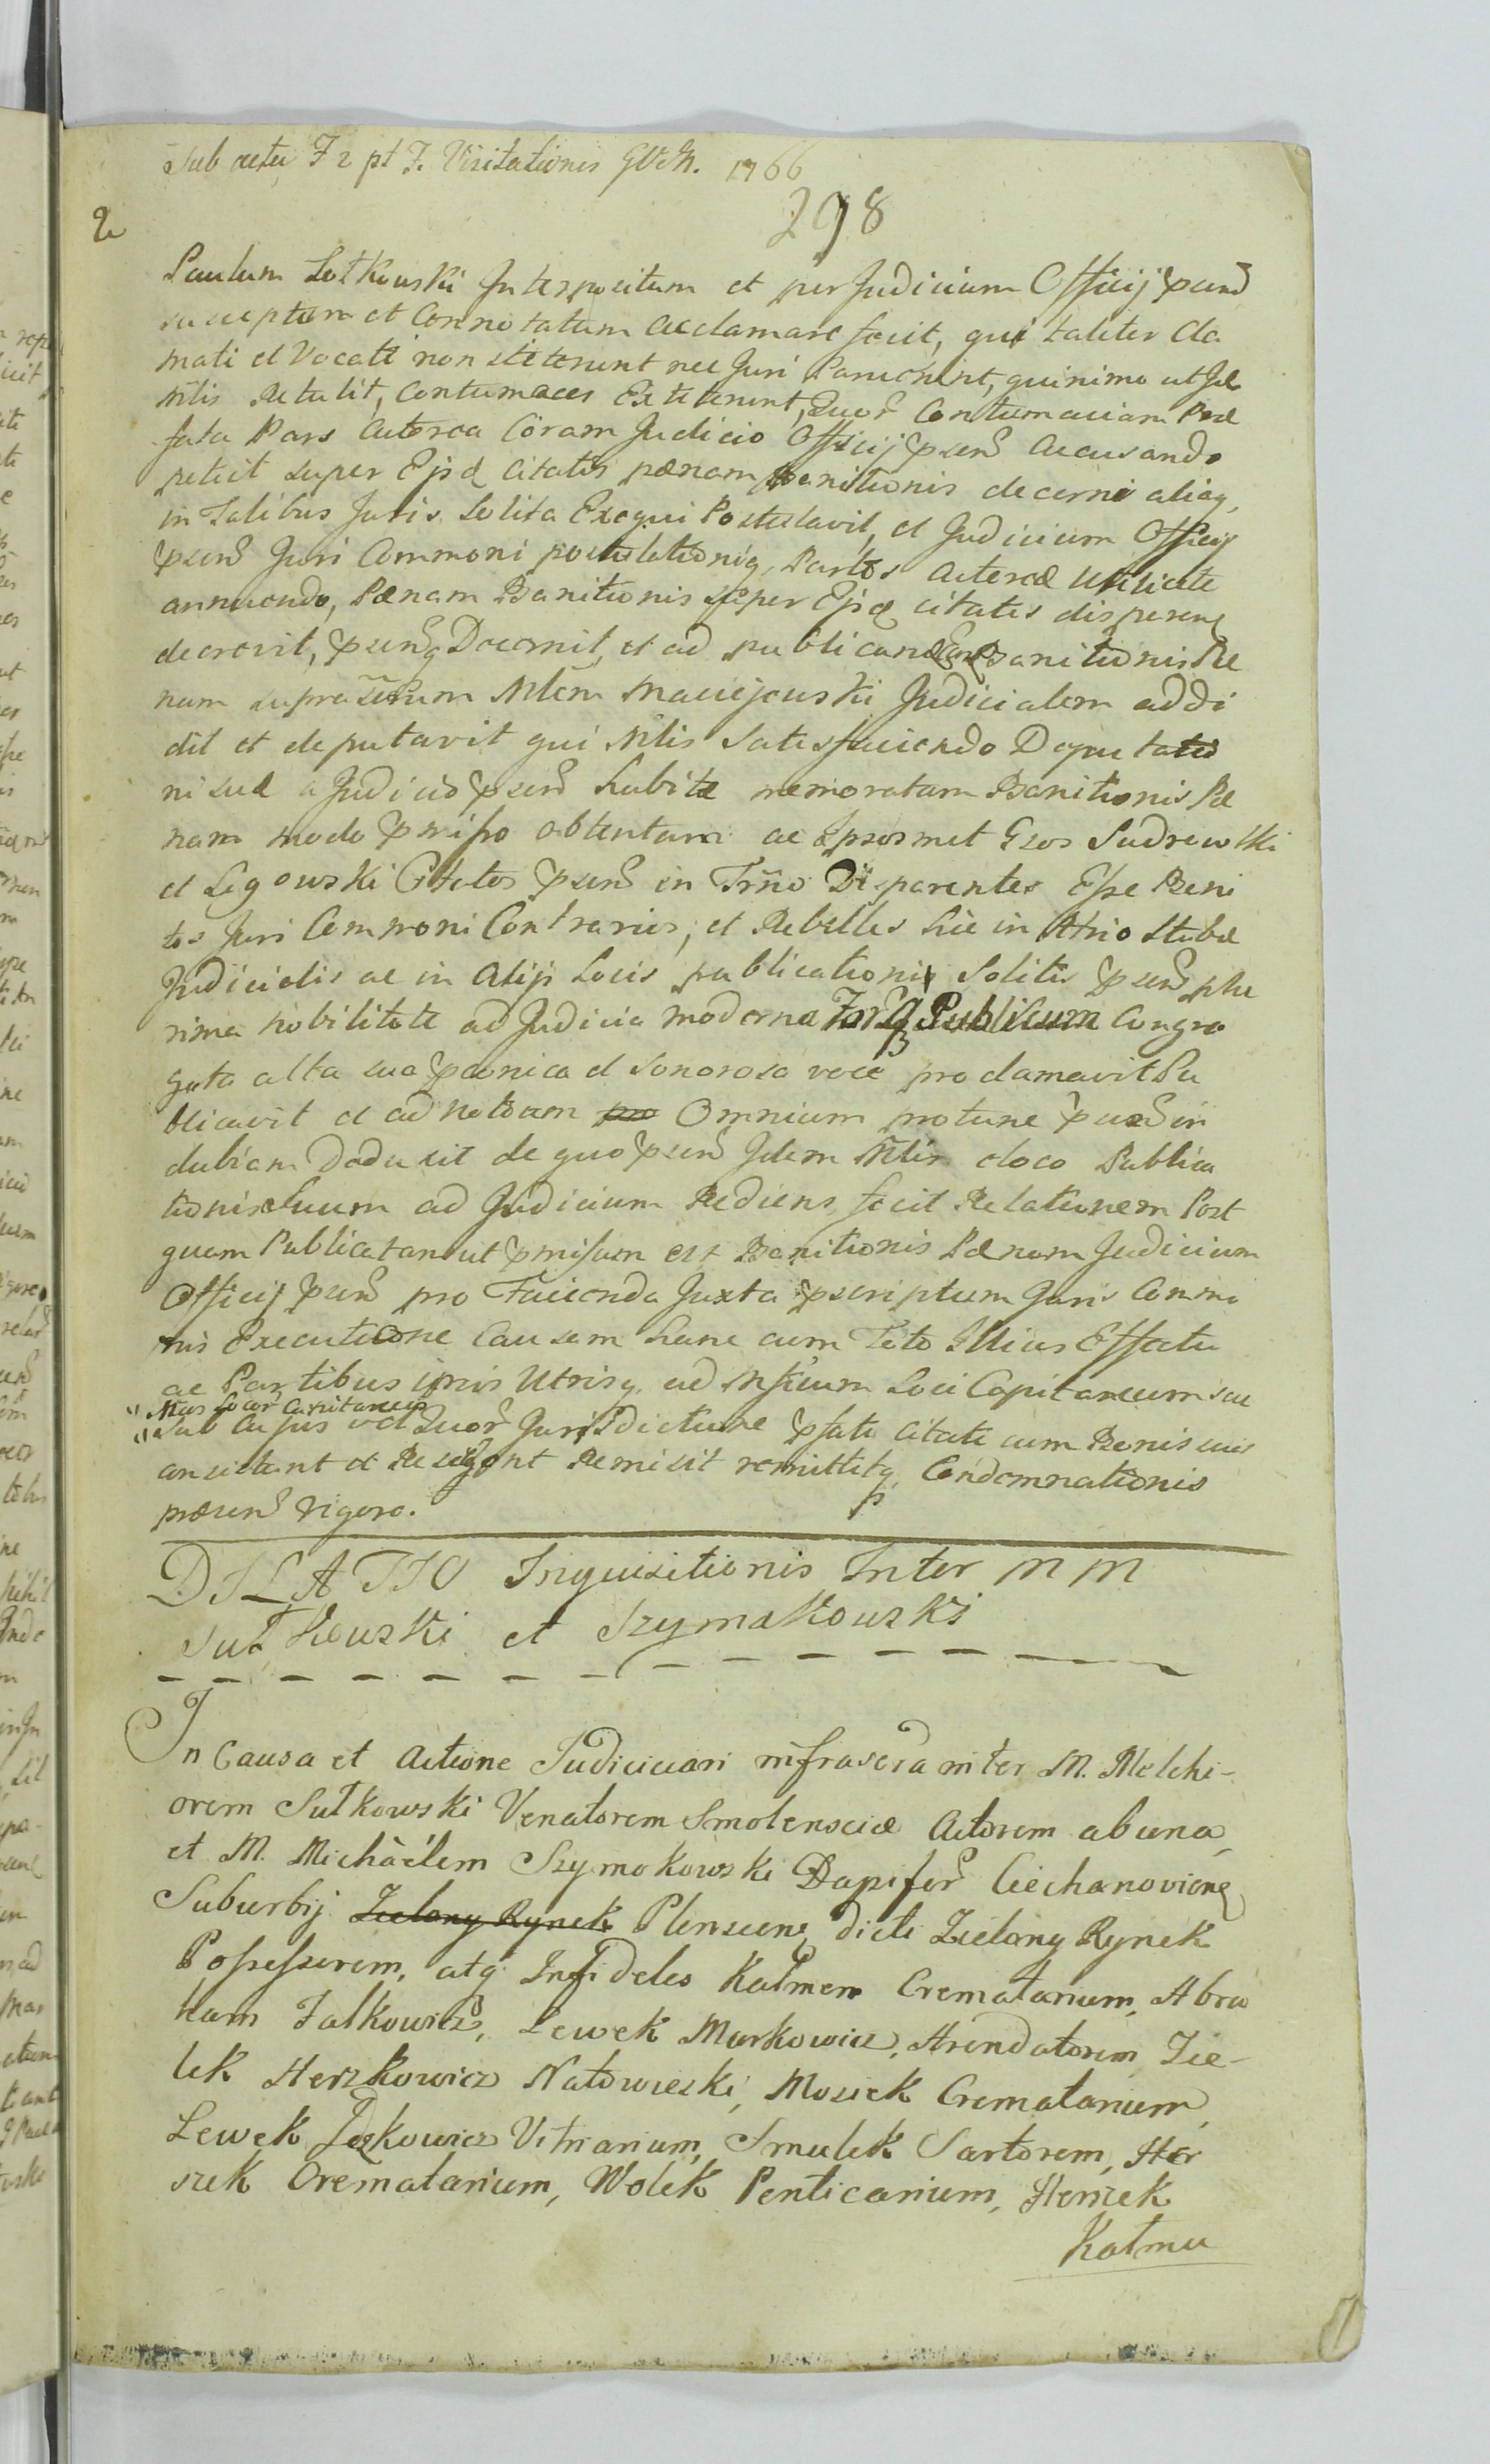 Sub actu F 2 pt F. Visitationis GVM. 1766
298
2
Paulum Lotkowski Interpositum et per Judicium Officij psens
susceptum et Connotatum acclamare fecit, qui taliter Cla
mati et Vocati non stiterunt nec Juri Paruerunt, quinimo ut Idem
Mtlis Retulit, Contumaces Extiterunt, Quor Contumaciam Præ
fata Pars Actorea Coram Judicio Officij psens Accusando
petiit super Ejsd Citatis pænam Banitionis decerni aliaq
in Talibus Juris Solita Exequi Postulavit, et Judicium Officij
psens Juri Commoni postulationiq Partis Actoreæ Utilicate
annuendo, Pænam Banitionis super Ejsd citatis disparenq
decrevit, psensq Decernit, et ad publicand Banitionis Pæ
nam suprascrum Mtlem Maciejowski Judicialem addi
dit et deputavit qui Mtlis Satisfaciendo Deputatio
ni suæ a Judicio psens habitæ memoratam Banitionis Pæ
nam modo pmisso obtentam ac ipsosmet Gsos Sudrowski
et Legowski Citatos psens in Trño Disparentes Esse Bani
tos Juri Commoni Contrarios, et Rebelles hic in Atrio Stubæ
Judicialis ac in Alijs Locis publicationi Solitis psens plu
rima nobilitate ad Judicia moderna Forq Publicum Congre
gata alta sua pconica et sonorosa voce proclamavit Pu
blicavit et ad notitiam Omnium protunc psens in
dubiam Deduxit de quo psens Idem Mtlis eloco Publica
tionis Suum ad Judicium Rediens, fecit Relationem Post
quam Publicatam ut pmissum est Banitionis Pænam Judicium
Officij psens pro Facienda Juxta pscriptum Juris Commu
nis Executione Causam hanc cum Toto Illius Effectu
ac Partibus ipsis Utrisq ad Mficum Loci Capitaneum seu
Mcos Locor Capitaneos
Sub Cujus vel Quor Jurisdictione pfati Citati cum Bonis suis
consistunt et Resident Remisit remittitq Condemnationis
præsens Vigore.
DILATIO Inquisitionis Inter MM
Sutkowski et Szymakowski
In Causa et Actione Judiciciari infrascra inter M. Melchi-
orem Sutkowski Venatorem Smolensciæ Actorem ab una
et M. Michàélem Szymakowski Dapifer Ciechanovienq
Suburbij Zielony Rynek Plenscenq dicti Zielony Rynek
Possessorem, atq Infideles Kalmen Crematarium, Abra
ham Falkowicz, Lewek Markowicz, Arendatorem Zie-
lek Herzkowicz Natowieski, Mosiek Crematarium,
Lewek Jezkowicz Vitriarium, Smulek Sartorem, Her
szek Crematarium, Wolek Penticarium, Herszek
Katmu